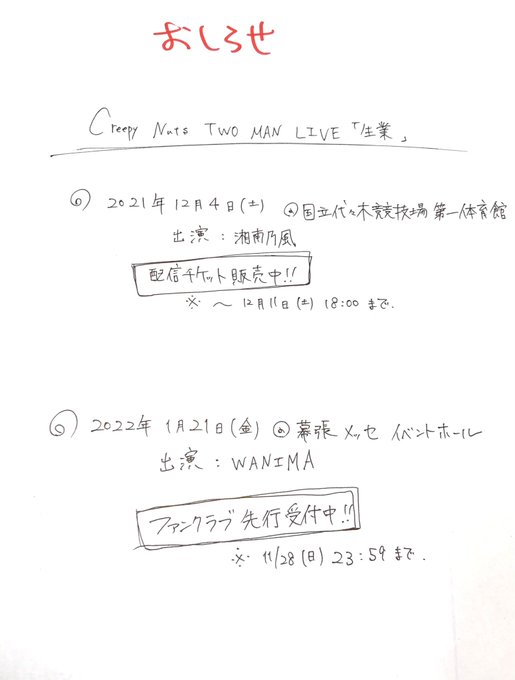 おしろせ
Creepy Nuts TWO MAN LIVE「生業」
◎ 2021年12月4日(土) @国立代々木競技場 第一体育館
出演：湘南乃風
配信チケット販売中!!
※ 〜 12月11日(土) 18:00 まで.
◎ 2022年 1月21日(金) @幕張メッセ イベントホール
出演：WANIMA
ファンクラブ先行受付中!!
※ 11/28(日) 23:59 まで.